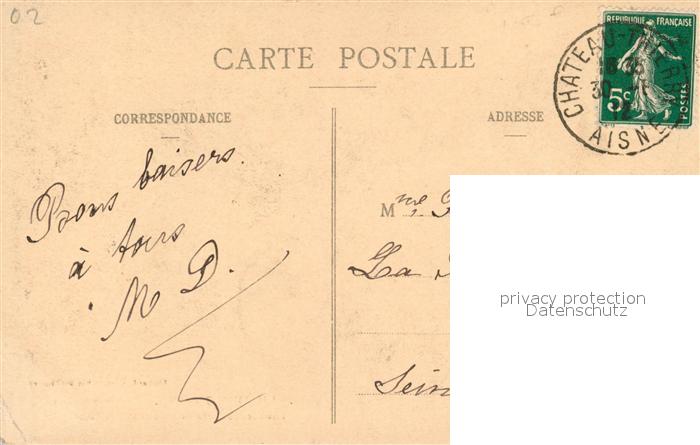 02
CARTE POSTALE
REPUBLIQUE FRANÇAISE
5c
POSTES
CHATEAU-THIERRY
30
12
AISNE
CORRESPONDANCE
ADRESSE
Bons baisers.
à tous
M D.
Mme
La
Sein
privacy protection
Datenschutz